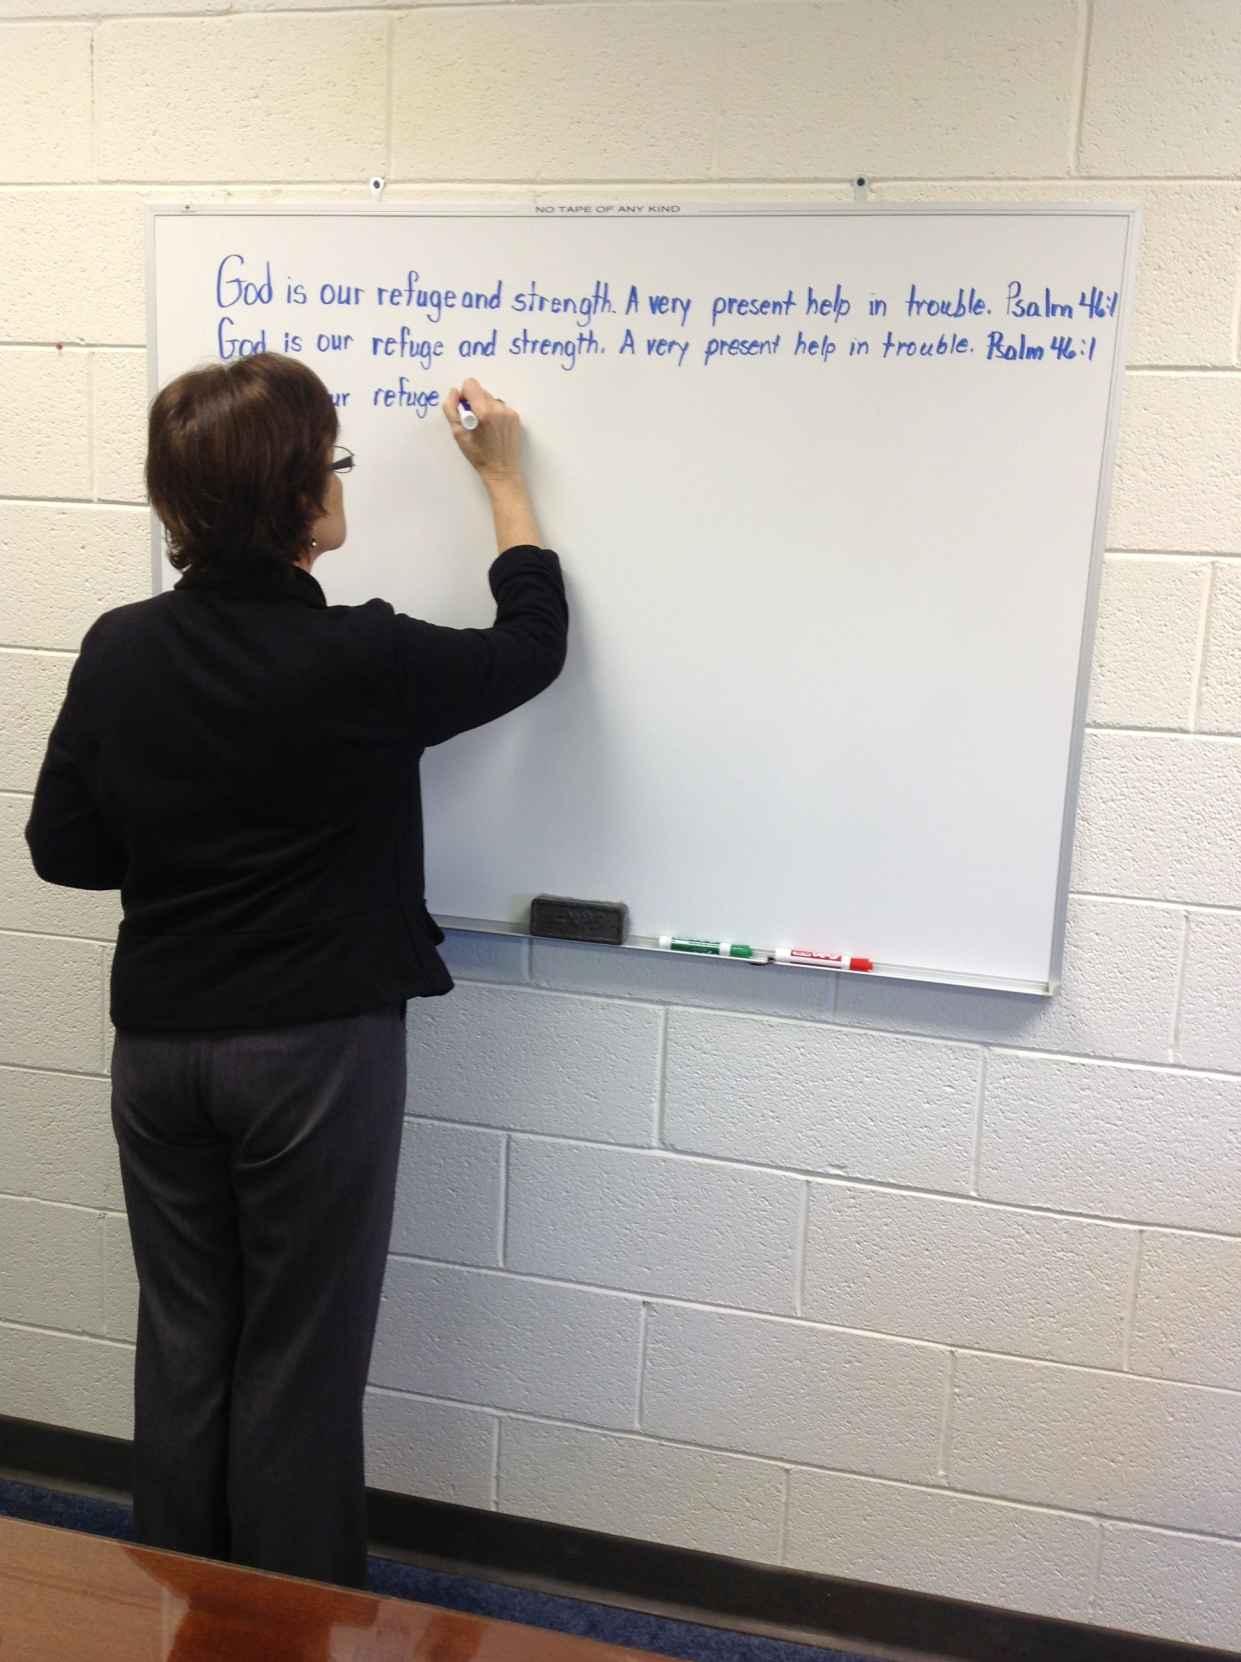 NO TAPE OF ANY KIND
God is our refuge and strength. A very present help in trouble. Psalm 46:1
God is our refuge and strength. A very present help in trouble. Psalm 46:1
ur refuge